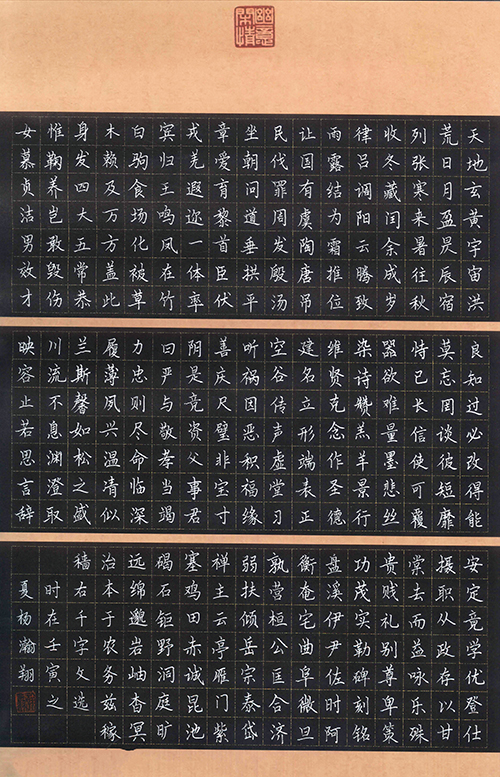 幽意閒情
天地玄黄宇宙洪
荒日月盈昃辰宿
列张寒来暑往秋
收冬藏闰余成岁
律吕调阳云腾致
雨露结为霜推位
让国有虞陶唐吊
民伐罪周发殷汤
坐朝问道垂拱平
章爱育黎首臣伏
戎羌遐迩一体率
宾归王鸣凤在竹
白驹食场化被草
木赖及万方盖此
身发四大五常恭
惟鞠养岂敢毁伤
女慕贞洁男效才
良知过必改得能
莫忘罔谈彼短靡
恃己长信使可覆
器欲难量墨悲丝
染诗赞羔羊景行
维贤克念作圣德
建名立形端表正
空谷传声虚堂习
听祸因恶积福缘
善庆尺璧非宝寸
阴是竞资父事君
曰严与敬孝当竭
力忠则尽命临深
履薄夙兴温清似
兰斯馨如松之盛
川流不息渊澄取
映容止若思言辞
安定竟学优登仕
摄职从政存以甘
棠去而益咏乐殊
贵贱礼别尊卑策
功茂实勒碑刻铭
盘溪伊尹佐时阿
衡奄宅曲阜微旦
孰营桓公匡合济
弱扶倾岳宗泰岱
禅主云亭雁门紫
塞鸡田赤城昆池
碣石钜野洞庭旷
远绵邈岩岫杳冥
治本于农务兹稼
穑右千字文选
时在壬寅之
夏杨瀚翔